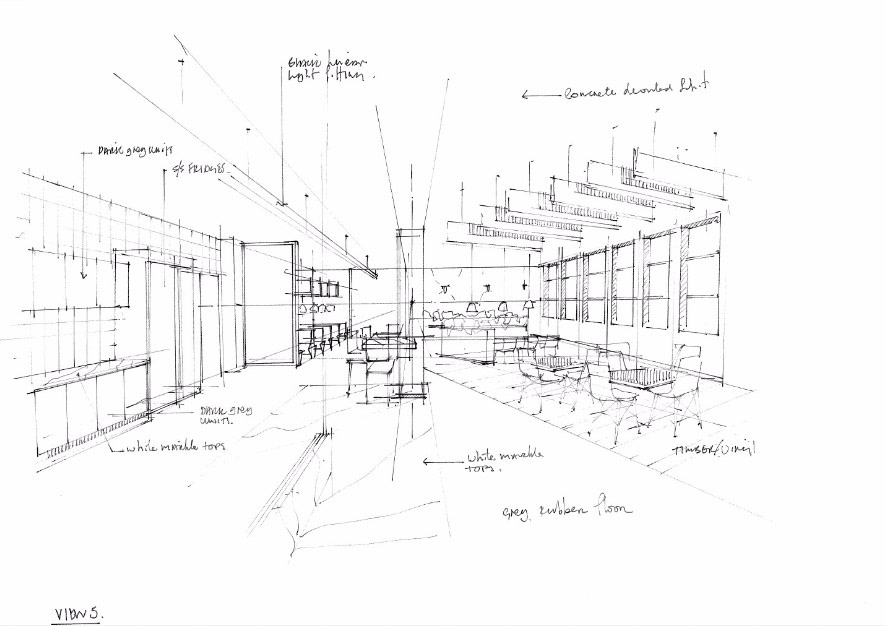 light fitting.
Concrete
Dark grey units
S/S FRIDGES
Dark grey
units.
White marble tops
White marble
tops.
TIMBER/Vinyl
Grey rubber floor
VIEW 5.